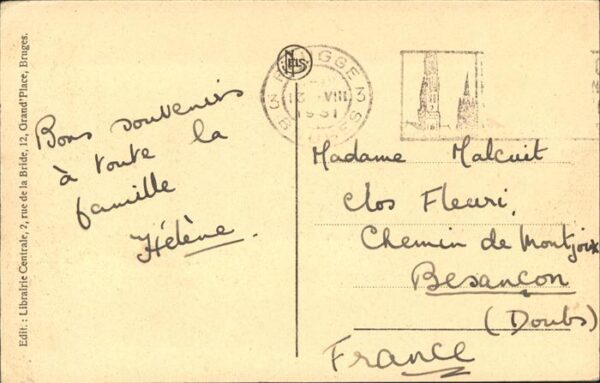 Edit. : Librairie Centrale, 2, rue de la Bride, 12, Grand'Place, Bruges.
Bons souvenirs
à toute la
famille
Hélène.
NELS
BRUGGE
3 13 -VIII 3
1931
BRUGES
Madame Malcuit
Clos Fleuri,
Chemin de Montjoix
Besançon
(Doubs)
France